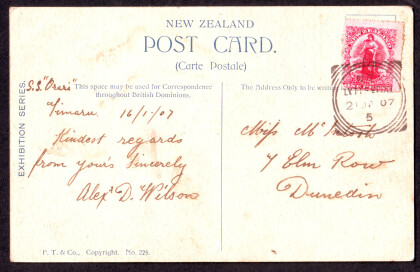 NEW ZEALAND
POST CARD.
(Carte Postale)
EXHIBITION SERIES.
This space may be used for Correspondence
throughout British Dominions.
The Address Only to be written
S.S.
Timaru 16/1/07
Kindest regards
from yours Sincerely
Alex D. Wilson
Miss
7 Elm Row
Dunedin
2 JA 07
5
F. T. & Co., Copyright. No. 228.